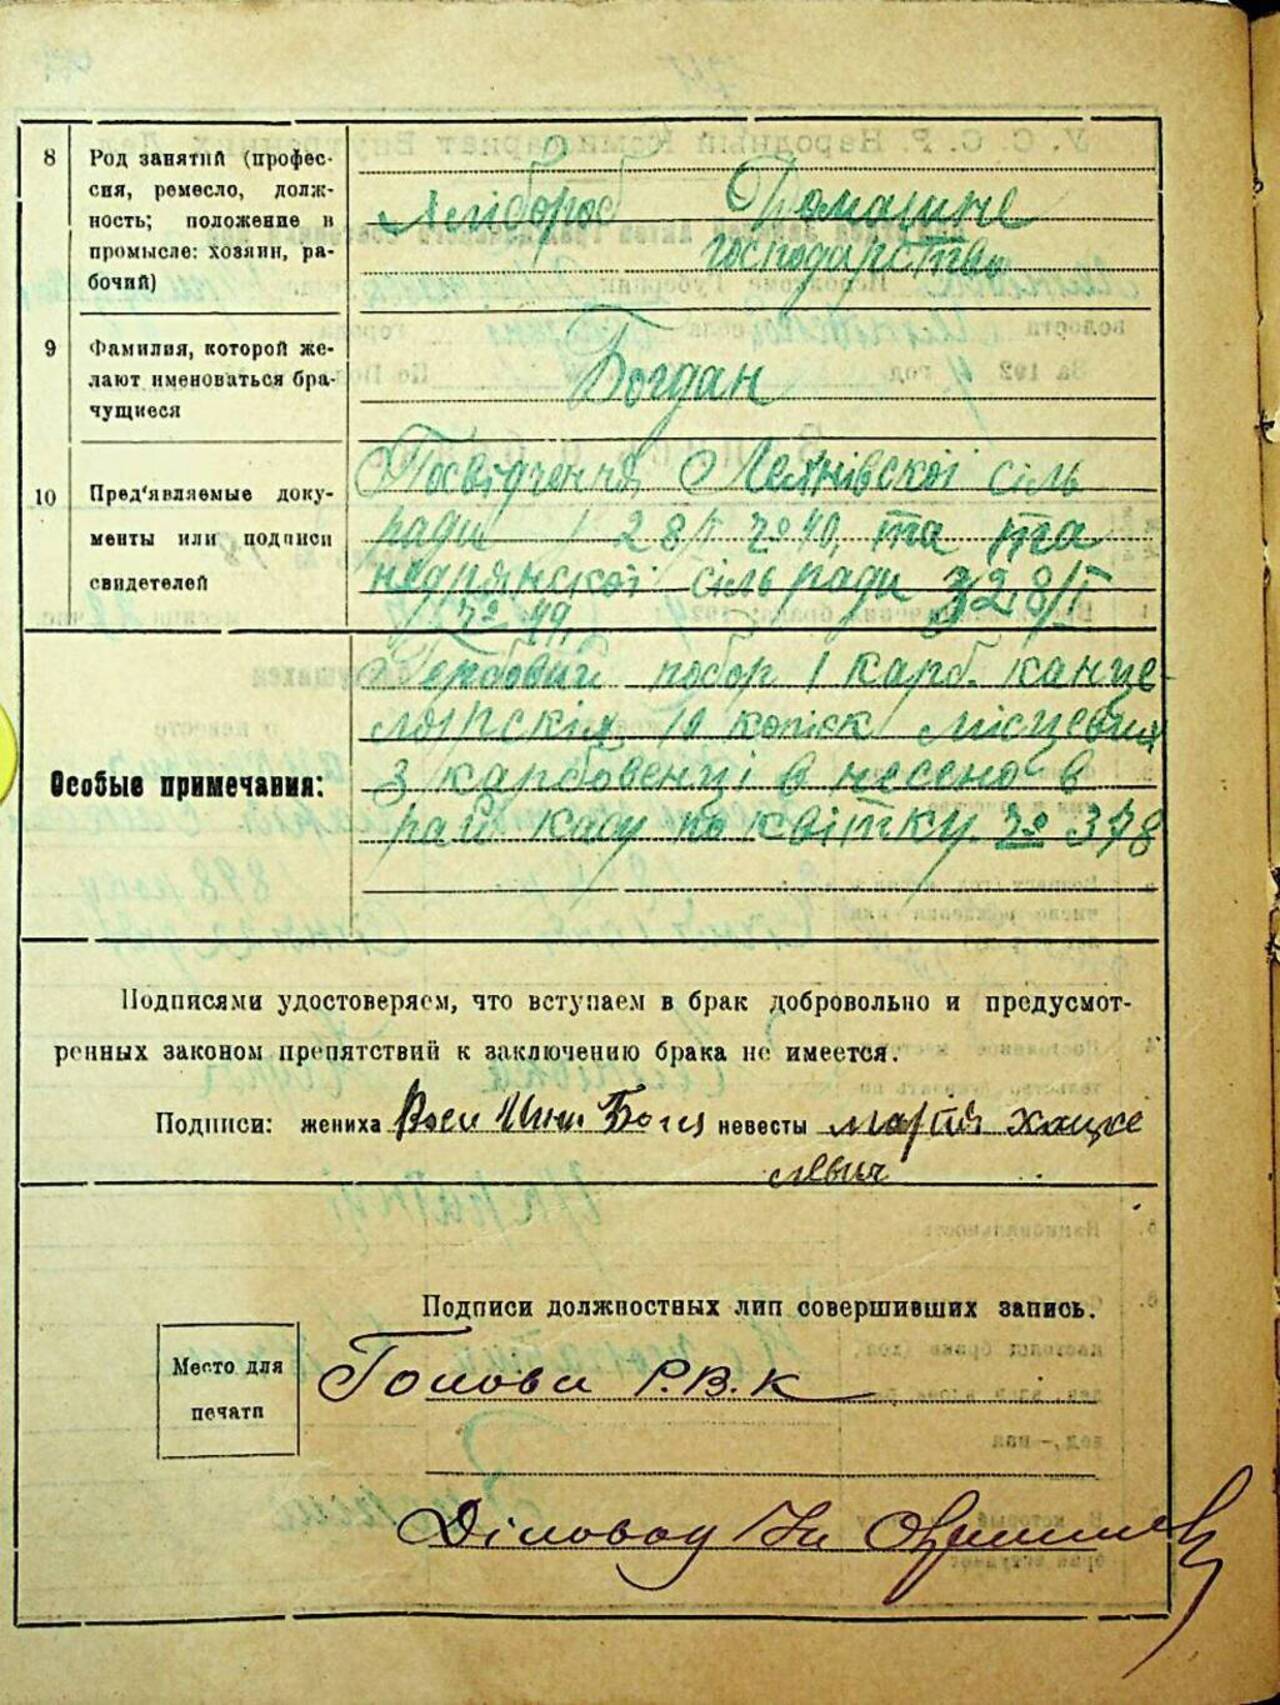 8 Род занятий (профес-
сия, ремесло, долж-
ность; положение в
промысле: хозяин, ра-
бочий)
Хлібороб Домашнє
господарство
9 Фамилия, которой же-
лают именоваться бра-
чущиеся
Богдан
10 Пред'являемые доку-
менты или подписи
свидетелей
Посвідчення сіль
ради 28/I № 40, та
сіль ради 28/I
№ 49
Особые примечания:
Гербовий побор 1 карб. канце
лярскіх 10 копієк місцевих
3 карбовенці в несено в
рай касу по квітку № 378
Подписями удостоверяем, что вступаем в брак добровольно и предусмот-
ренных законом препятствий к заключению брака не имеется.
Подписи: жениха невесты Мария Хацке
левич
Подписи должностных лип совершивших запись.
Место для
печати
Голова Р.В.К
Діловод